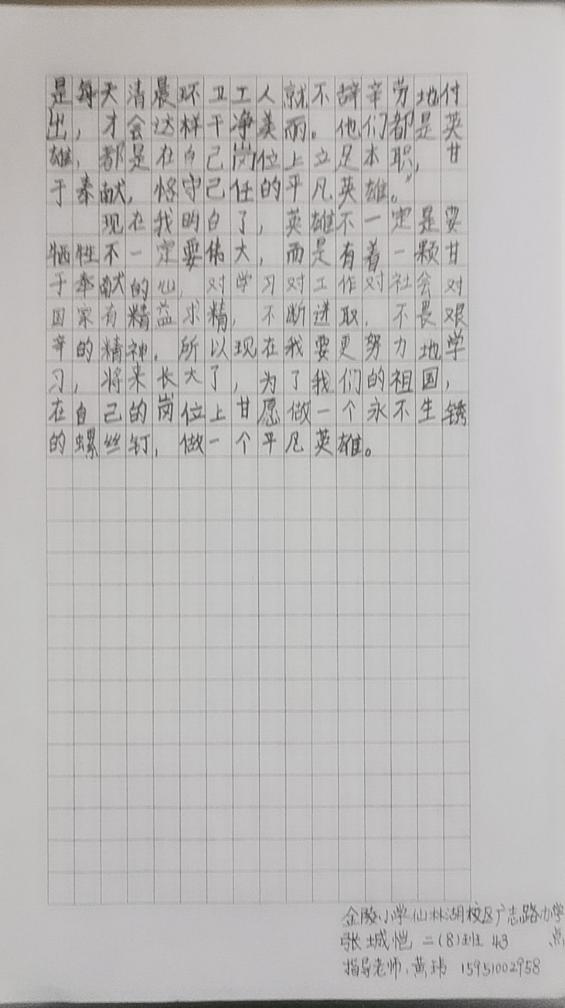 是每天清晨环卫工人就不辞辛劳地付
出，才会这样干净美丽。他们都是英
雄，都是在自己岗位上立足本职，甘
于奉献，恪守己任的平凡英雄。”
现在我明白了，英雄不一定是要
牺牲不一定要伟大，而是有着一颗甘
于奉献的心，对学习对工作对社会对
国家有精益求精，不断进取，不畏艰
辛的精神。所以现在我要更努力地学
习，将来长大了，为了我们的祖国，
在自己的岗位上甘愿做一个永不生锈
的螺丝钉，做一个平凡英雄。
金陵小学仙林湖校区广志路办学
张城恺 二(8)班 43 点
指导老师：黄玮 15951002958